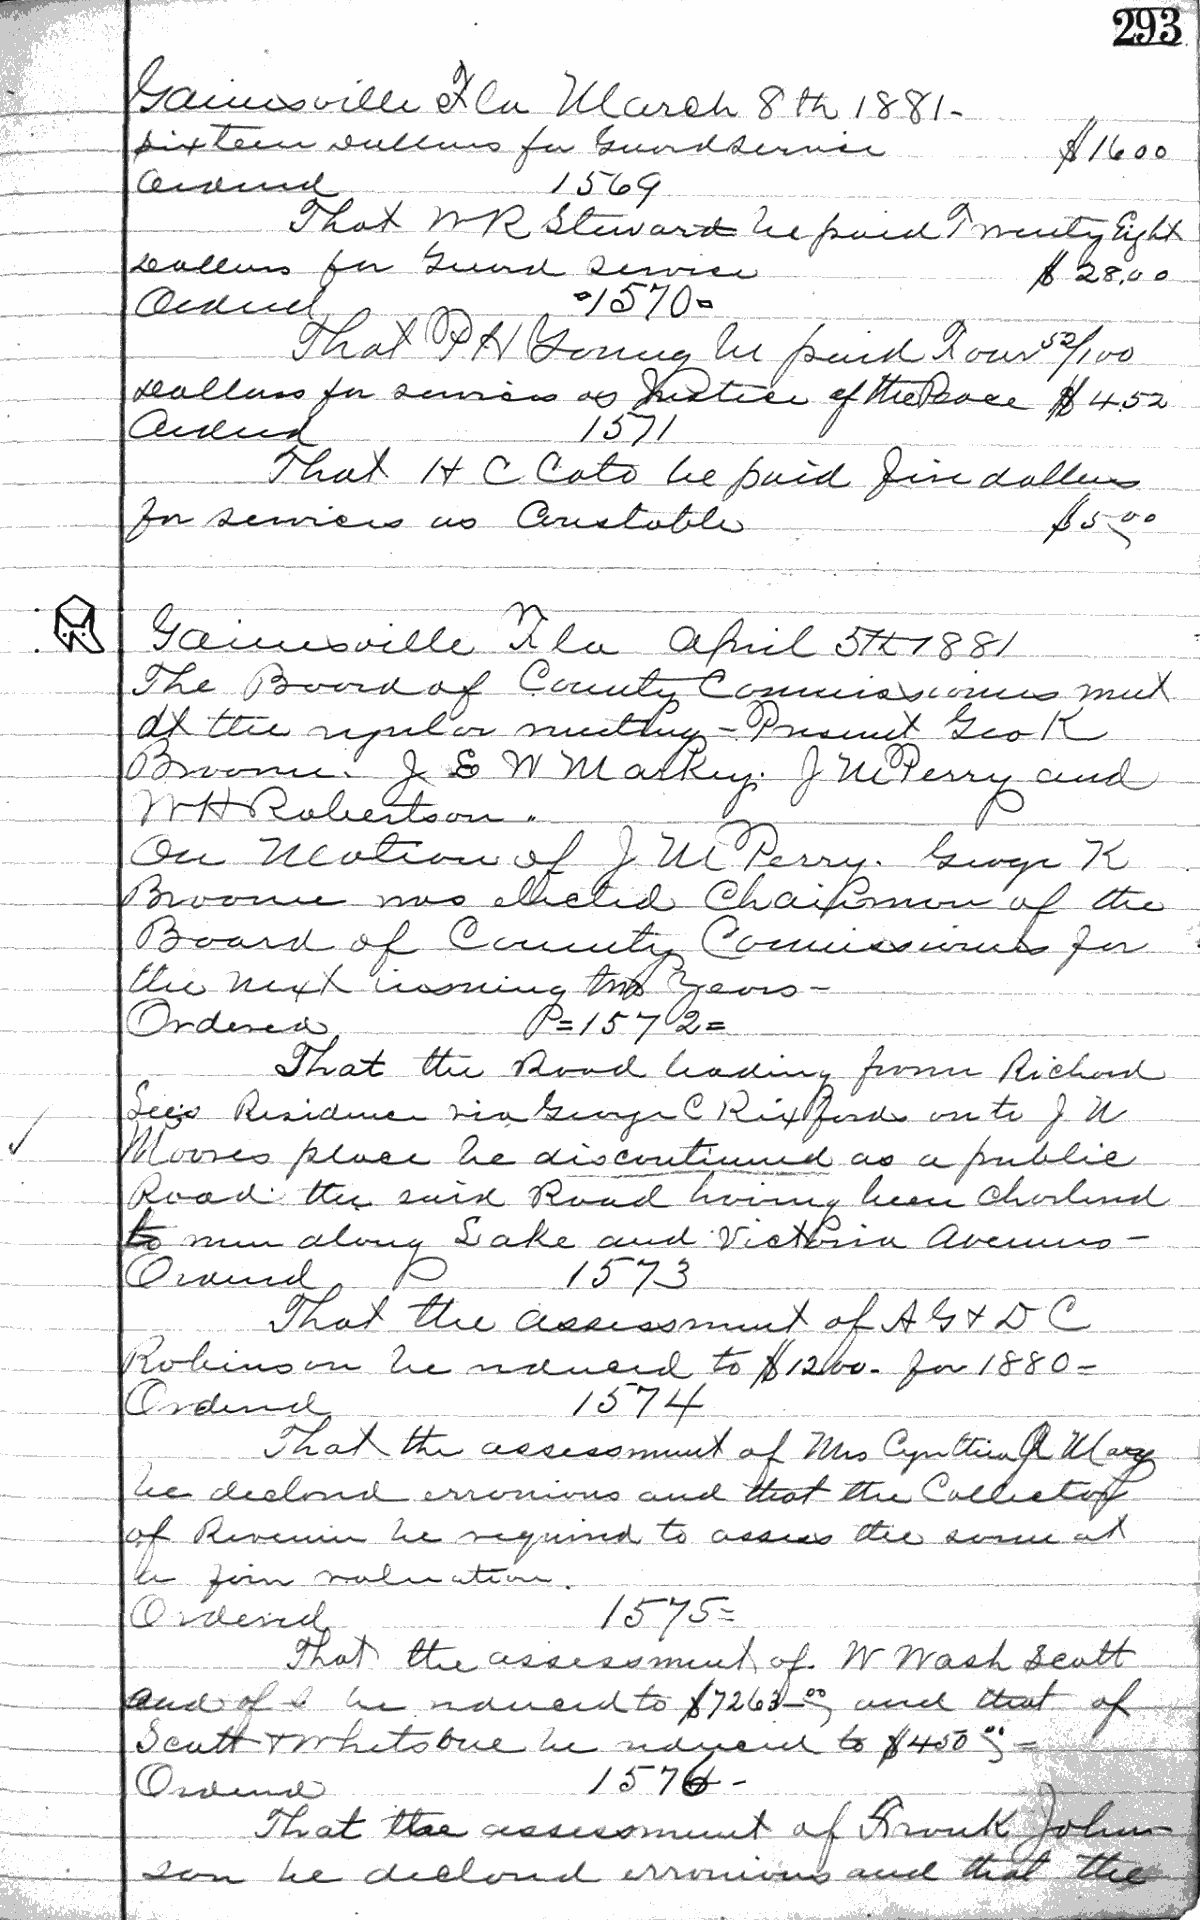 293
Gainesville Fla March 8th 1881-
sixteen dollars for Guard service $16 00
Ordered 1569
That W R Steward be paid Twenty Eight
dollars for Guard Service $28.00
Ordered 1570
That P H Young be paid Four 52/100
dollars for services as Justice of the Peace $4.52
Ordered 1571
That H C Cato be paid five dollars
for services as Constable $5.00
Gainesville Fla April 5th 1881
The Board of County Commissioners met
at the regular meeting - Present Geo K
Broome. J E W Markey. J M Perry and
W H Robertson.
On Motion of J M Perry. George K
Broome was elected Chairman of the
Board of County Commissioners for
the next two Years-
Ordered =1572=
That the Road leading from Richard
Residence via George C Rixfords on to J N
Moores place be discontinued as a public
Road the said Road having been
to run along Lake and Victoria Avenues-
Ordered 1573
That the assessment of A G & D C
Robinson be reduced to $1200- for 1880=
Ordered 1574
That the assessment of Mrs Cynthia
be declared erronious and that the Collector
of Revenue be required to assess the same at
a fair valuation.
Ordered 1575=
That the assessment of W Wash Scott
and of be reduced to $7263-00 and that of
Scott & be reduced to $450 00 -
Ordered 1576-
That the assessment of Frank John-
son be declared erronious and that the